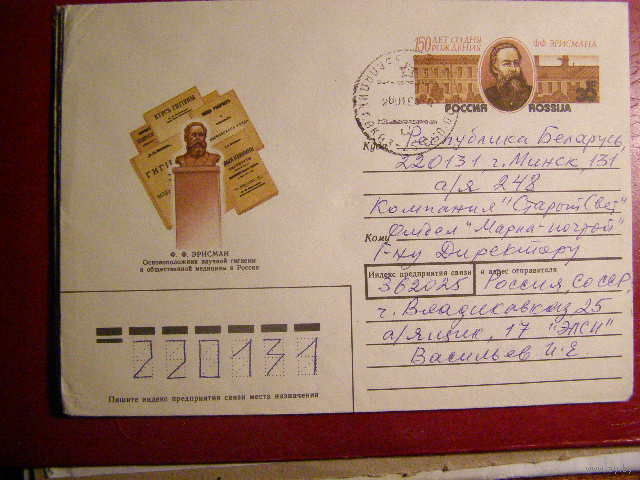 150 ЛЕТ СО ДНЯ
РОЖДЕНИЯ
Ф.Ф. ЭРИСМАНА
РОССИЯ ROSSIJA
КУРСЪ ГИГІЕНЫ
Куда Республика Беларусь,
220131, г. Минск, 131
а/я 248
Компания "Старый Свет"
Кому Отдел "Марка-почтой"
Г-ну Директору
Индекс предприятия связи и адрес отправителя
362025 Россия, СО ССР,
г. Владикавказ, 25
а/ящик, 17 "ЭЛСИ"
Васильев И.Е.
Ф. Ф. ЭРИСМАН
Основоположник научной гигиены
и общественной медицины в России
220131
Пишите индекс предприятия связи места назначения